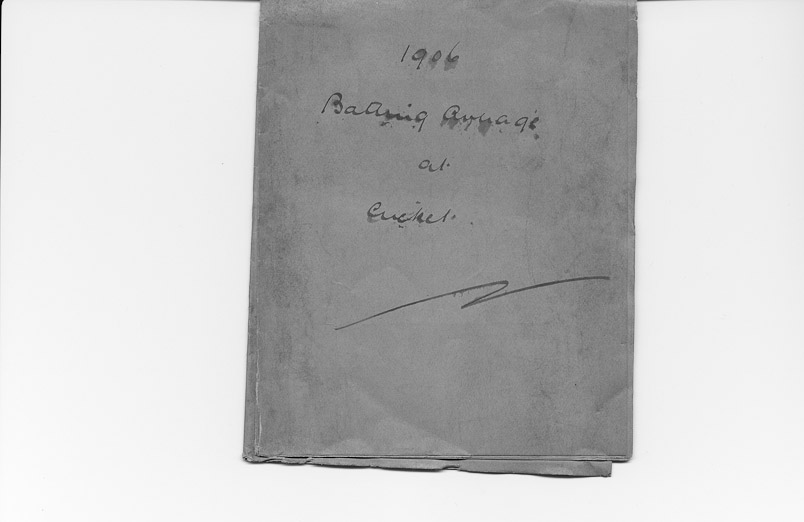 1906
Batting Average
at
Cricket.